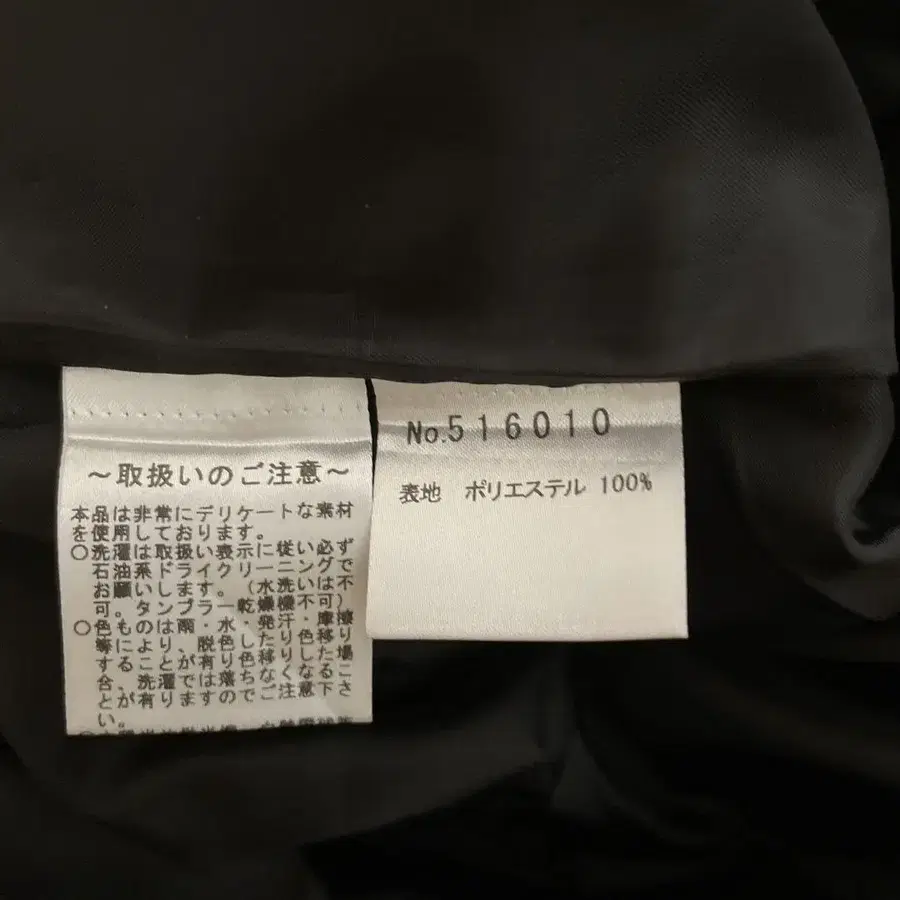 ～取扱いのご注意～
本品は非常にデリケートな素材
を使用しております。
○洗濯は取扱い表示に従い必ず
石油系ドライクリーニングで
お願いします。（水洗いは不
可。タンブラー乾燥機不可）
○色ものは雨・水・発汗・摩擦
等により、脱色したり色移り
することが有り色移りした場
合、洗濯では落ちなくなるこ
とが有りますのでご注意下さ
い。
No.516010
表地 ポリエステル 100%